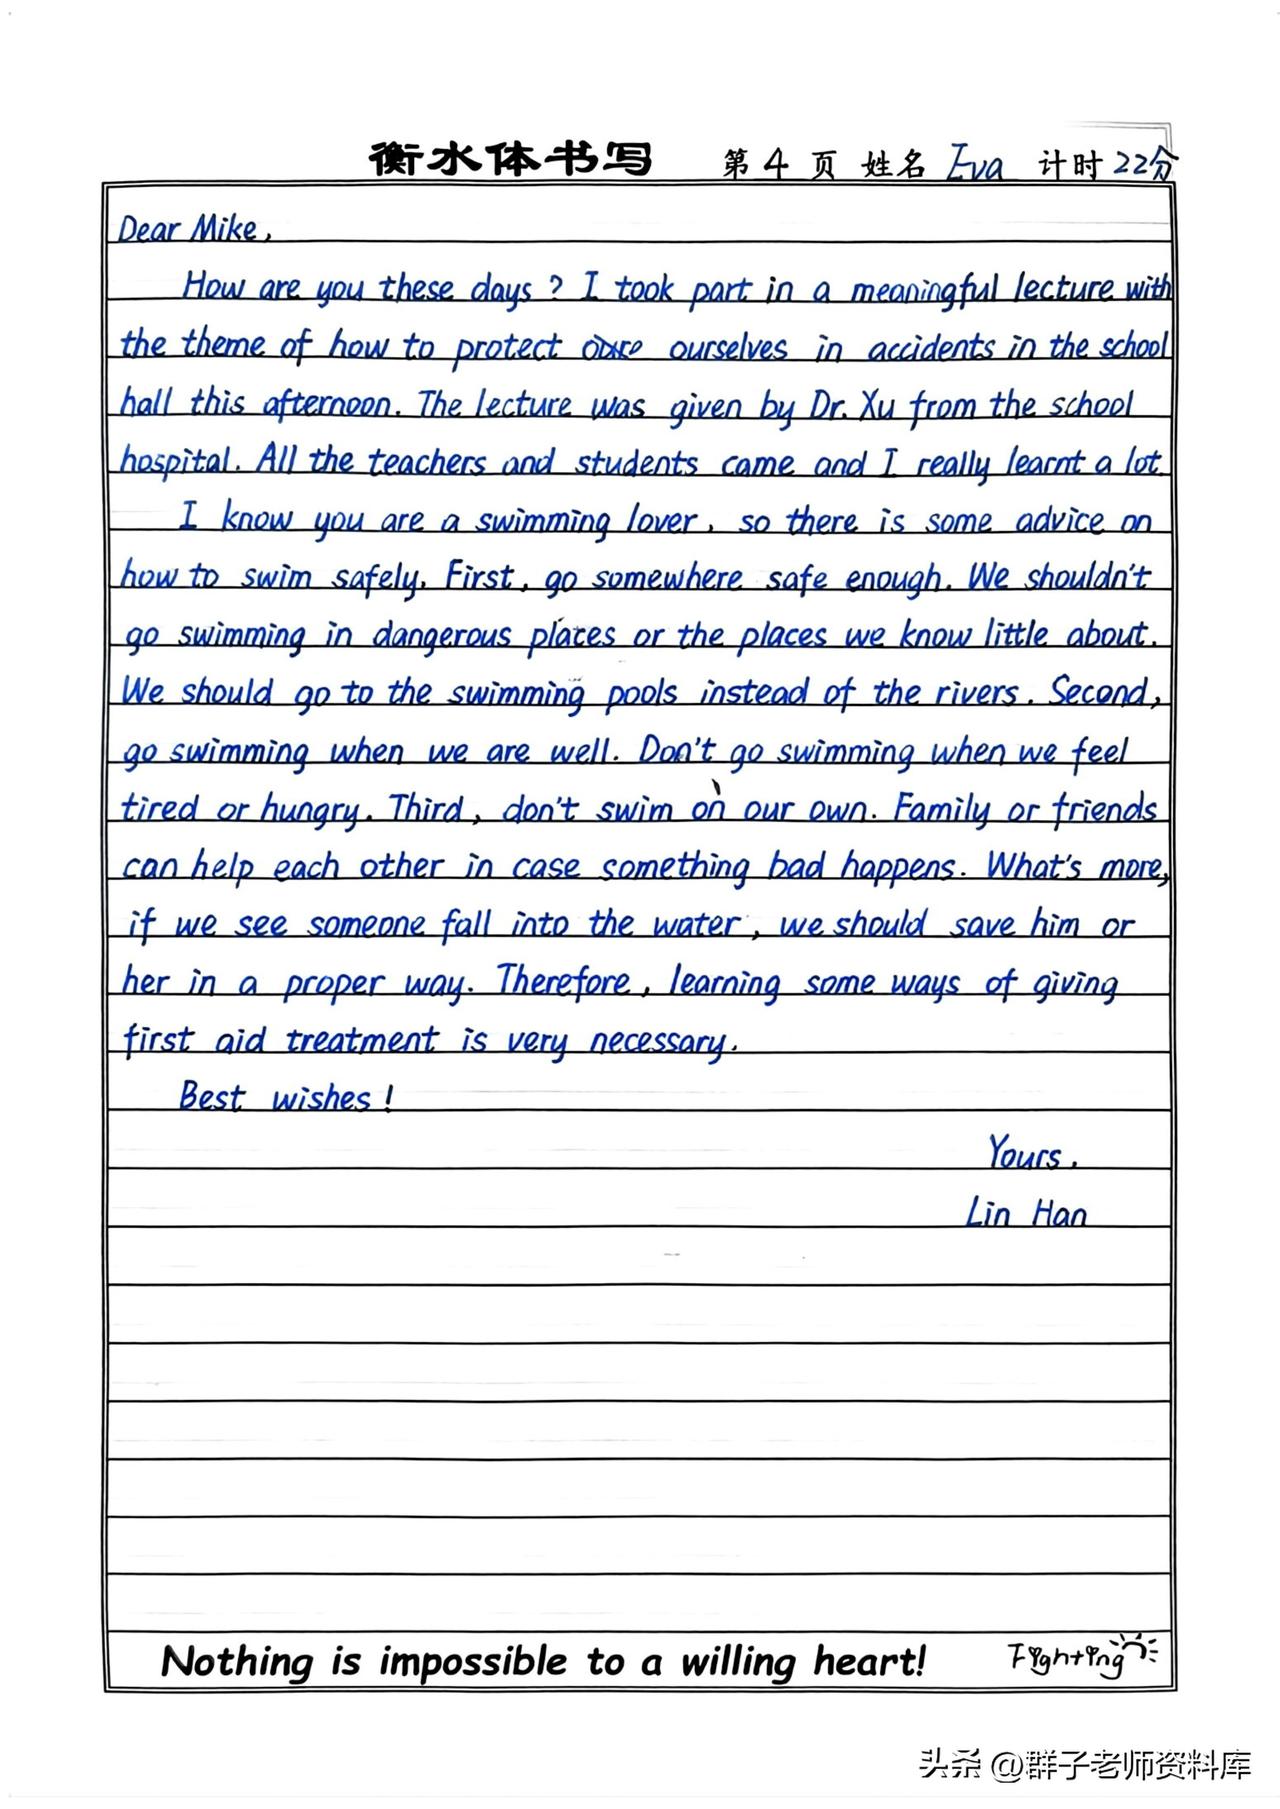 衡水体书写 第 4 页 姓名 Eva 计时 22分
Dear Mike,
How are you these days? I took part in a meaningful lecture with
the theme of how to protect ourselves in accidents in the school
hall this afternoon. The lecture was given by Dr. Xu from the school
hospital. All the teachers and students came and I really learnt a lot.
I know you are a swimming lover, so there is some advice on
how to swim safely. First, go somewhere safe enough. We shouldn't
go swimming in dangerous places or the places we know little about.
We should go to the swimming pools instead of the rivers. Second,
go swimming when we are well. Don't go swimming when we feel
tired or hungry. Third, don't swim on our own. Family or friends
can help each other in case something bad happens. What's more,
if we see someone fall into the water, we should save him or
her in a proper way. Therefore, learning some ways of giving
first aid treatment is very necessary.
Best wishes!
Yours,
Lin Han
Nothing is impossible to a willing heart! Fighting
头条 @群子老师资料库